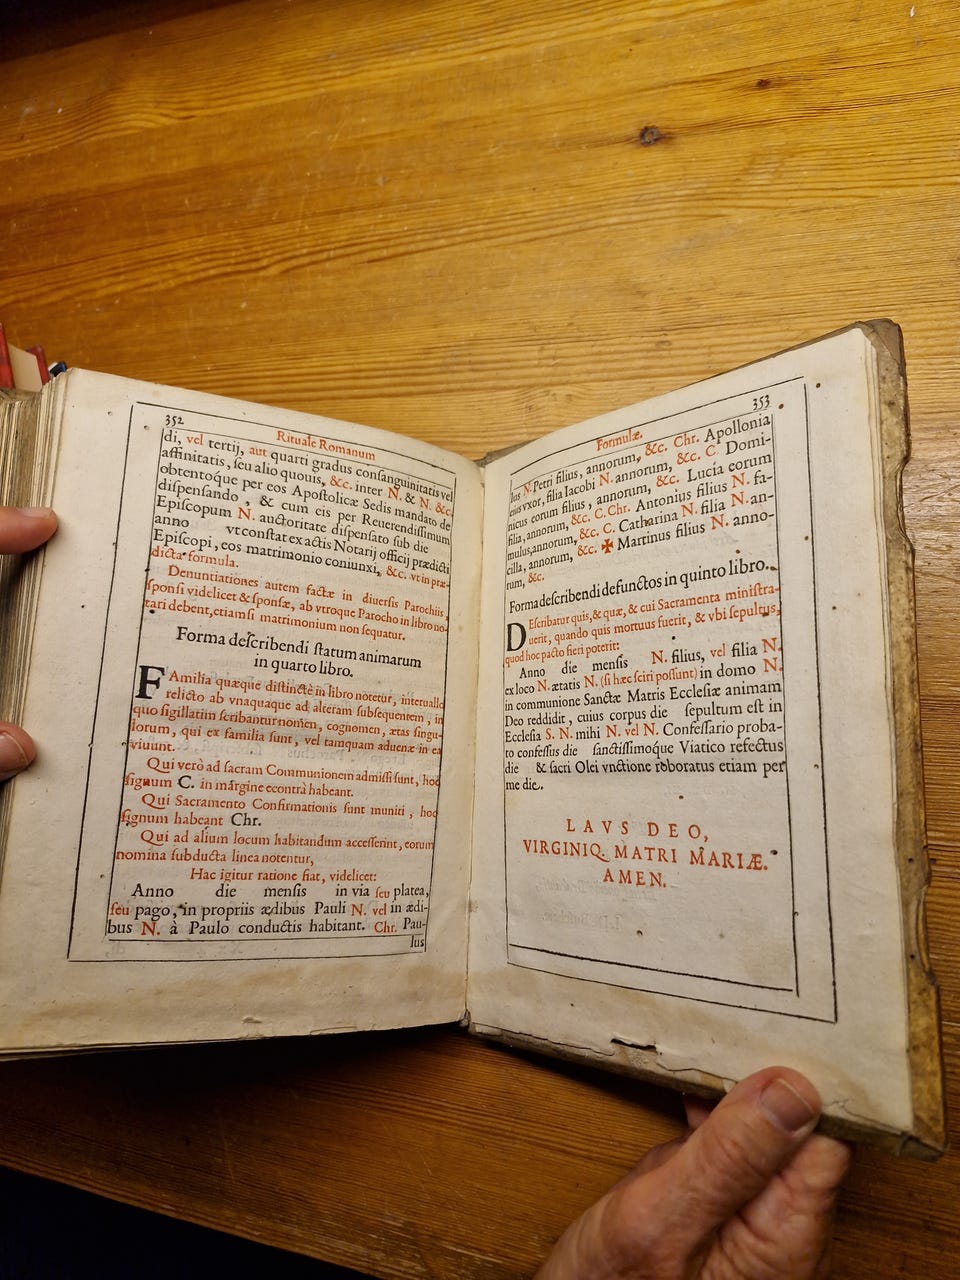 352
Rituale Romanum
di, vel tertij, aut quarti gradus consanguinitatis vel
affinitatis, seu alio quouis, &c. inter N. & N. &c.
obtentoque per eos Apostolicæ Sedis mandato de
dispensando, & cum eis per Reuerendissimum
Episcopum N. auctoritate dispensato sub die
anno vt constat ex actis Notarij officij prædicti
Episcopi, eos matrimonio coniunxi, &c. vt in præ-
dicta formula.
Denuntiationes autem factæ in diuersis Parochiis,
sponsi videlicet & sponsæ, ab vtroque Parocho in libro no-
tari debent, etiamsi matrimonium non sequatur.
Forma describendi statum animarum
in quarto libro.
FAmilia quæque distinctè in libro notetur, interuallo
relicto ab vnaquaque ad alteram subsequentem, in
quo sigillatim scribantur nomen, cognomen, ætas singu-
lorum, qui ex familia sunt, vel tamquam aduenæ in ea
viuunt.
Qui verò ad sacram Communionem admissi sunt, hoc
signum C. in margine econtrà habeant.
Qui Sacramento Confirmationis sunt muniti, hoc
signum habeant Chr.
Qui ad alium locum habitandum accesserint, eorum
nomina subducta linea notentur,
Hac igitur ratione fiat, videlicet:
Anno die mensis in via seu platea,
seu pago, in propriis ædibus Pauli N. vel in ædi-
bus N. à Paulo conductis habitant. Chr. Pau-
lus
353
Formulæ.
lus N. Petri filius, annorum, &c. Chr. Apollonia
eius vxor, filia Iacobi N. annorum, &c. C. Domi-
nicus eorum filius, annorum, &c. Lucia eorum
filia, annorum, &c. C. Chr. Antonius filius N. fa-
mulus, annorum, &c. C. Catharina N. filia N. an-
cilla, annorum, &c. ✠ Martinus filius N. anno-
rum, &c.
Forma describendi defunctos in quinto libro.
DEscribatur quis, & quæ, & cui Sacramenta ministra-
uerit, quando quis mortuus fuerit, & vbi sepultus,
quod hoc pacto fieri poterit:
Anno die mensis N. filius, vel filia N.
ex loco N. ætatis N. (si hæc sciri possunt) in domo N.
in communione Sanctæ Matris Ecclesiæ animam
Deo reddidit, cuius corpus die sepultum est in
Ecclesia S. N. mihi N. vel N. Confessario proba-
to confessus die sanctissimoque Viatico refectus
die & sacri Olei vnctione roboratus etiam per
me die.
LAVS DEO,
VIRGINIQ. MATRI MARIÆ.
AMEN.